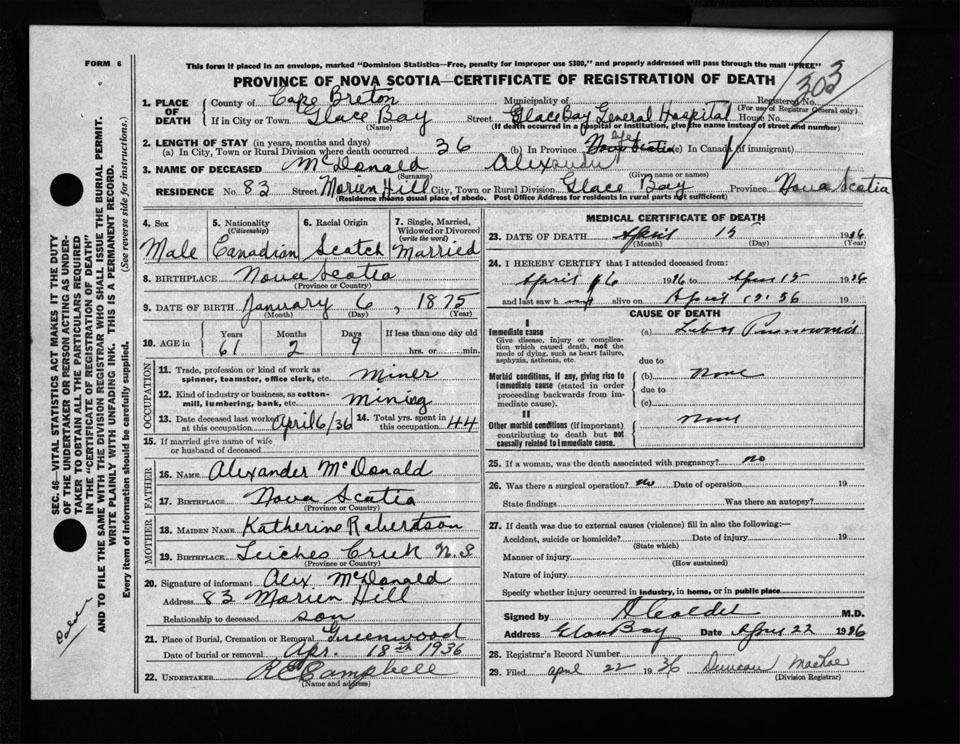 303
FORM 6
This form if placed in an envelope, marked "Dominion Statistics—Free, penalty for improper use $300," and properly addressed will pass through the mail "FREE"
PROVINCE OF NOVA SCOTIA—CERTIFICATE OF REGISTRATION OF DEATH
1. PLACE OF DEATH County of Cape Breton Municipality of Registered No.
(For use of Registrar General only)
If in City or Town Glace Bay Street Glace Bay General Hospital House No.
(Name) (If death occurred in a hospital or institution, give the name instead of street and number)
2. LENGTH OF STAY (in years, months and days)
(a) In City, Town or Rural Division where death occurred 36 (b) In Province life Nova Scotia (c) In Canada (if immigrant)
3. NAME OF DECEASED McDonald Alexander
(Surname) (Given name or names)
RESIDENCE No. 83 Street Morien Hill City, Town or Rural Division Glace Bay Province Nova Scotia
(Residence means usual place of abode. Post Office Address for residents in rural parts not sufficient)
4. Sex Male
5. Nationality (Citizenship) Canadian
6. Racial Origin Scotch
7. Single, Married, Widowed or Divorced (write the word) Married
8. BIRTHPLACE Nova Scotia
(Province or Country)
9. DATE OF BIRTH January 6, 1875
(Month) (Day) (Year)
10. AGE in Years 61 Months 2 Days 9 If less than one day old hrs. or min.
OCCUPATION
11. Trade, profession or kind of work as spinner, teamster, office clerk, etc. Miner
12. Kind of industry or business, as cotton-mill, lumbering, bank, etc. Mining
13. Date deceased last worked at this occupation April 6/36 14. Total yrs. spent in this occupation 44
15. If married give name of wife or husband of deceased
FATHER
16. NAME Alexander McDonald
17. BIRTHPLACE Nova Scotia
(Province or Country)
MOTHER
18. MAIDEN NAME Katherine Robertson
19. BIRTHPLACE Leiches Creek N.S
(Province or Country)
20. Signature of informant Alex McDonald
Address 83 Morien Hill
Relationship to deceased son
21. Place of Burial, Cremation or Removal Greenwood
Date of burial or removal Apr. 18th 1936
22. UNDERTAKER R E Campbell
(Name and address)
MEDICAL CERTIFICATE OF DEATH
23. DATE OF DEATH April 15 1936
(Month) (Day) (Year)
24. I HEREBY CERTIFY that I attended deceased from:
April 6 1936 to April 15 1936
and last saw h alive on April 19
CAUSE OF DEATH
I
Immediate cause (a) Lobar Pneumonia
Give disease, injury or complication which caused death, not the mode of dying, such as heart failure, asphyxia, asthenia, etc.
due to
Morbid conditions, if any, giving rise to immediate cause (stated in order proceeding backwards from immediate cause). (b) None
due to
(c)
II
Other morbid conditions (if important) contributing to death but not causally related to immediate cause. None
25. If a woman, was the death associated with pregnancy? no
26. Was there a surgical operation? no Date of operation 19
State findings Was there an autopsy?
27. If death was due to external causes (violence) fill in also the following:—
Accident, suicide or homicide? Date of injury 19
(State which)
Manner of injury
(How sustained)
Nature of injury
Specify whether injury occurred in industry, in home, or in public place
Signed by M.D.
Address Glace Bay Date April 22 1936
28. Registrar's Record Number
29. Filed April 22 1936 Duncan MacRae
(Division Registrar)
SEC. 46—VITAL STATISTICS ACT MAKES IT THE DUTY
OF THE UNDERTAKER OR PERSON ACTING AS UNDER-
TAKER TO OBTAIN ALL THE PARTICULARS REQUIRED
IN THE "CERTIFICATE OF REGISTRATION OF DEATH"
AND TO FILE THE SAME WITH THE DIVISION REGISTRAR WHO SHALL ISSUE THE BURIAL PERMIT.
WRITE PLAINLY WITH UNFADING INK. THIS IS A PERMANENT RECORD.
Every item of Information should be carefully supplied. (See reverse side for instructions.)